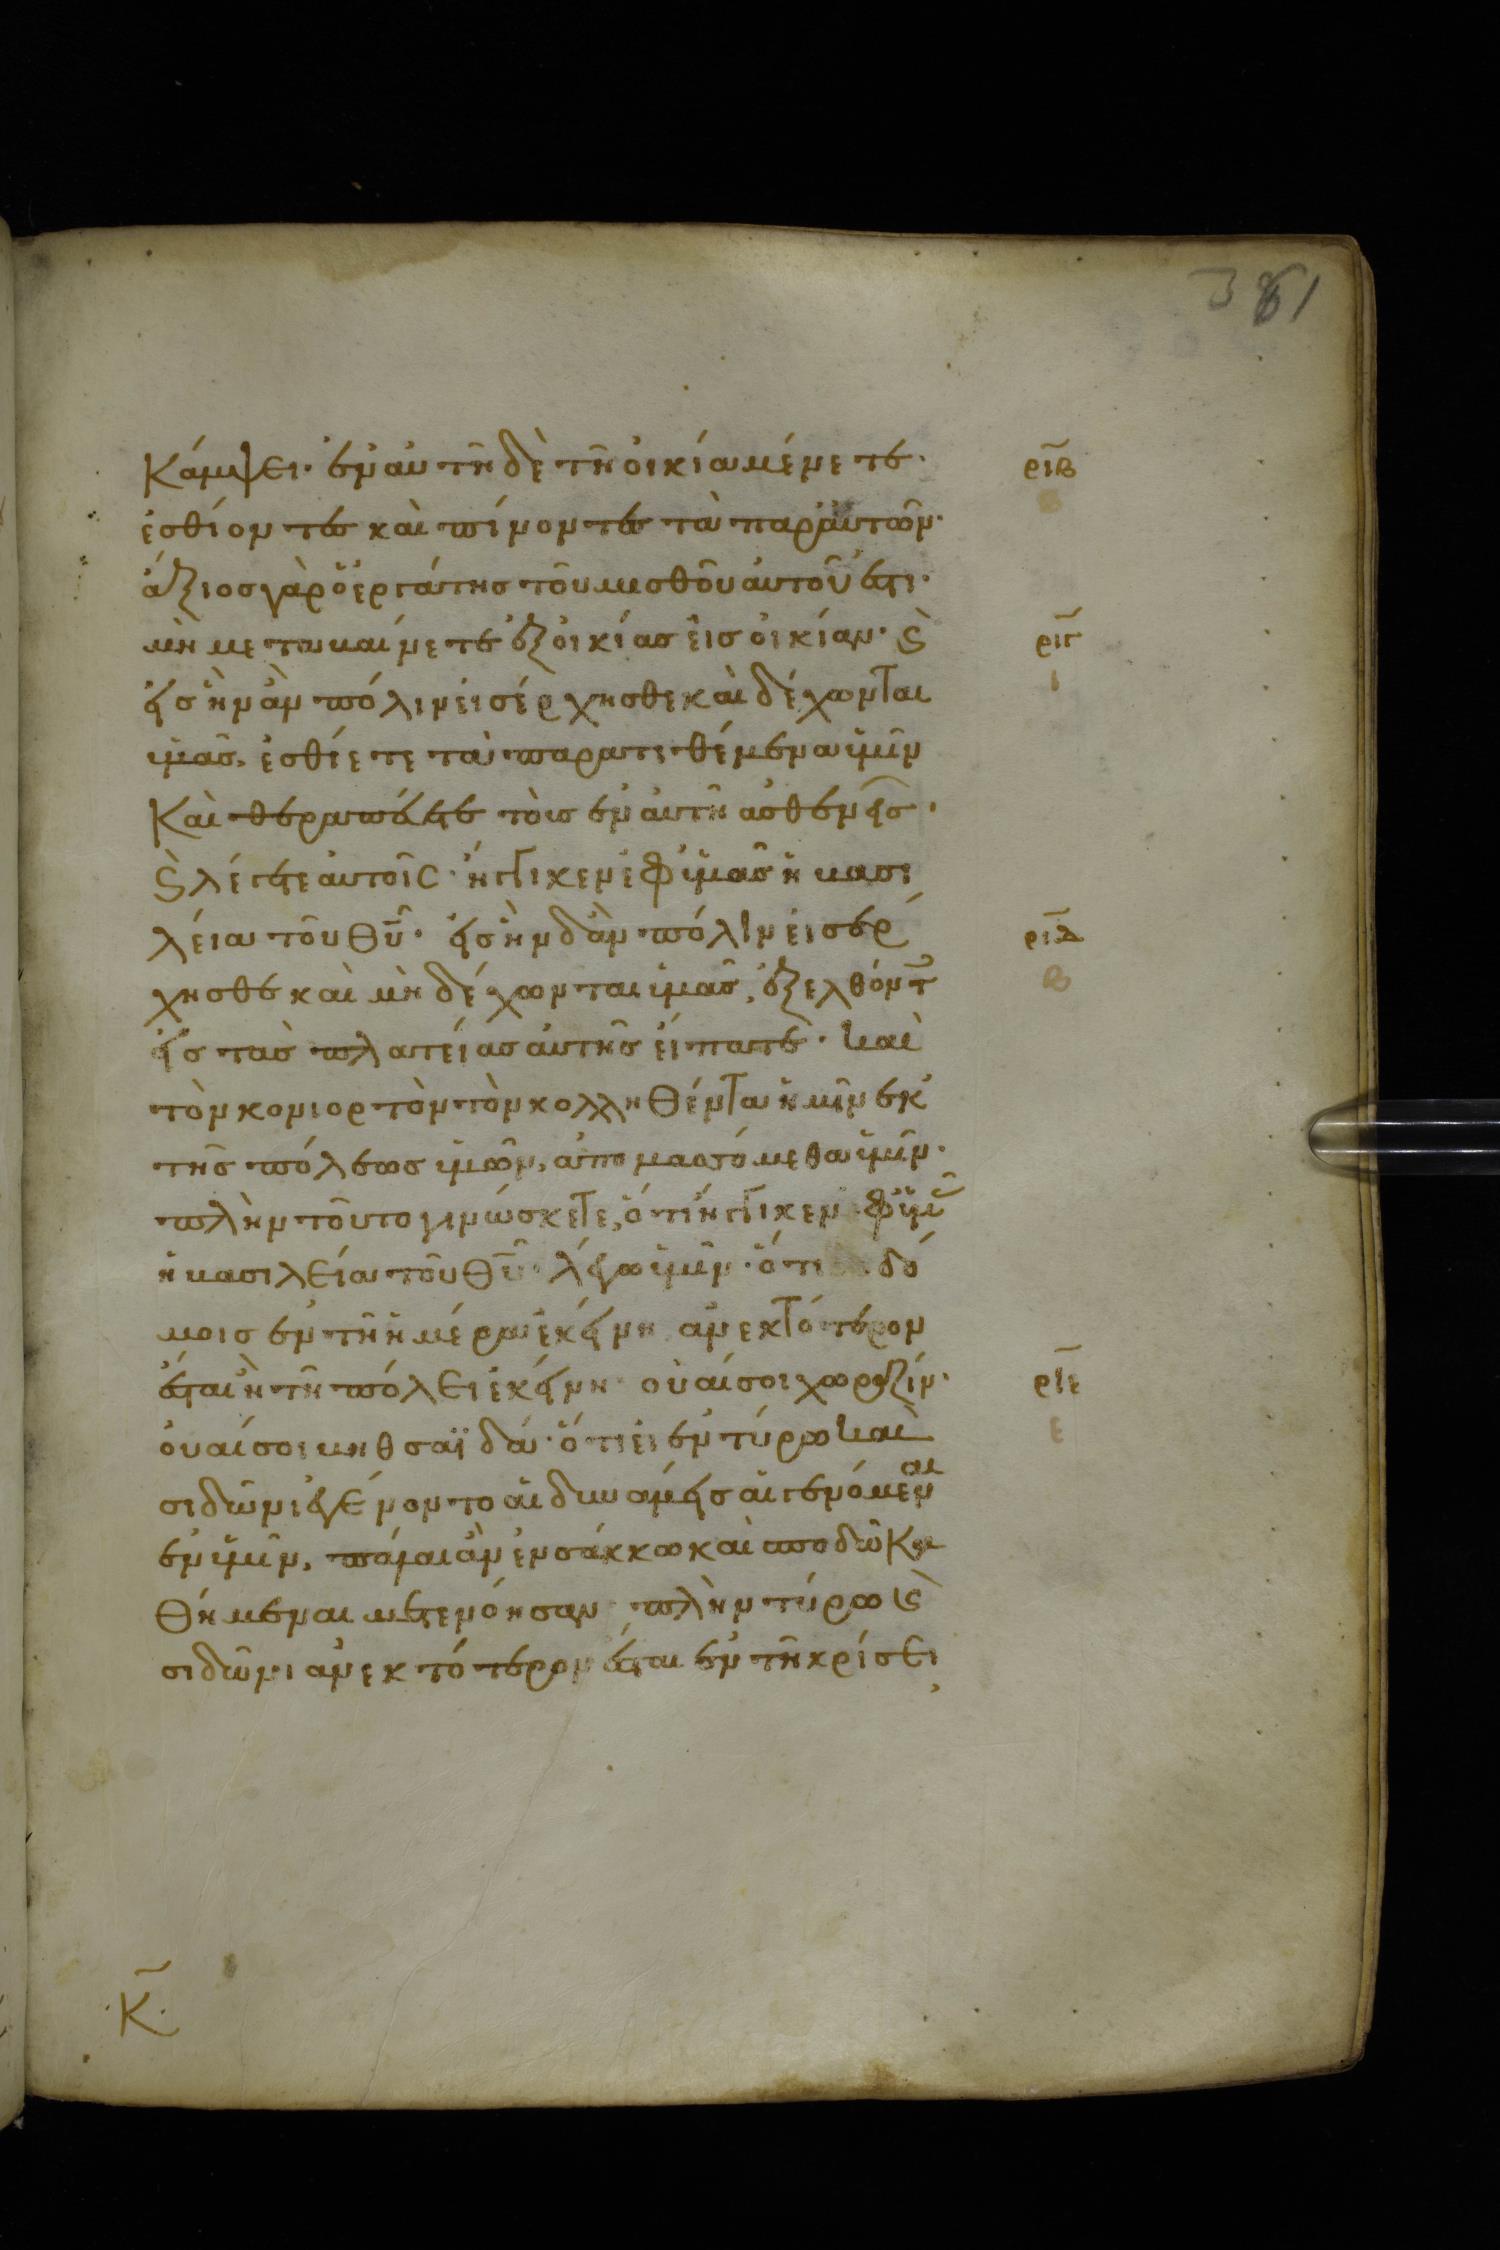 381
κάμψει· ἐν αὐτῆ δὲ τῆ οἰκία μένετε· ριβ
ἐσθίοντες καὶ πίνοντες τὰ παρ' αὐτῶν·
ἄξιος γὰρ ὁ ἐργάτης τοῦ μισθοῦ αὐτοῦ ἐστι·
μὴ μεταβαίνετε ἐξ οἰκίας εἰς οἰκίαν· ϛ ριγ
εἰς ἣν ἂν πόλιν εἰσέρχησθε καὶ δέχωνται ι
ὑμᾶς, ἐσθίετε τὰ παρατιθέμενα ὑμῖν
καὶ θεραπεύετε τοὺς ἐν αὐτῆ ἀσθενεῖς·
ϛ λέγετε αὐτοῖς· ἤγγικεν ἐφ' ὑμᾶς ἡ βασι
λεία τοῦ θῡ· εἰς ἣν δ' ἂν πόλιν εἰσέρ ριδ
χησθε καὶ μὴ δέχωνται ὑμᾶς, ἐξελθόντ β
εἰς τὰς πλατείας αὐτῆς εἴπατε· καὶ
τὸν κονιορτὸν τὸν κολληθέντα ἡμῖν ἐκ
τῆς πόλεως ὑμῶν, ἀπομασσόμεθα ὑμῖν·
πλὴν τοῦτο γινώσκετε, ὅτι ἤγγικεν ἐφ' ὑμ
ἡ βασιλεία τοῦ θῡ· λέγω ὑμῖν· ὅτι σοδό
μοις ἐν τῆ ἡμέρα ἐκείνη ἀνεκτότερον
ἔσται ἢ τῆ πόλει ἐκείνη· οὐαί σοι χωραζίν· ριε
οὐαί σοι βηθσαϊδά· ὅτι εἰ ἐν τύρω καὶ ε
σιδῶνι ἐγένοντο αἱ δυνάμεις αἱ γενόμεναι
ἐν ὑμῖν, πάλαι ἂν ἐν σάκκω καὶ σποδῶ κα
θήμεναι μετενόησαν· πλὴν τύρω ϛ
σιδῶνι ἀνεκτότερον ἔσται ἐν τῆ κρίσει,
·κ̄·